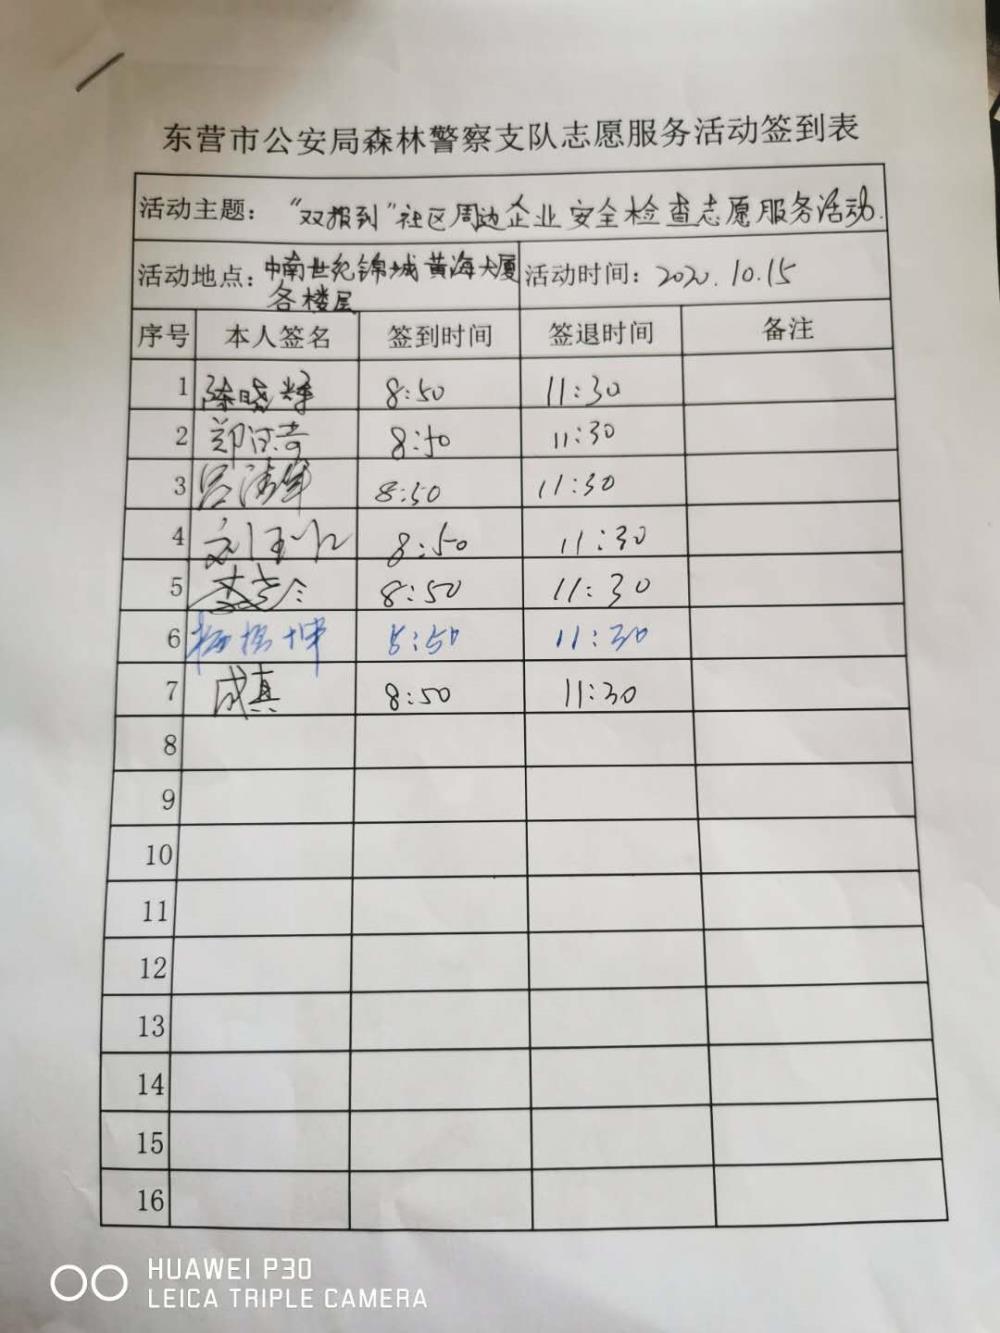 东营市公安局森林警察支队志愿服务活动签到表
活动主题："双报到"社区周边企业安全检查志愿服务活动.
活动地点：中南世纪锦城黄海大厦 活动时间：2020.10.15
各楼层
序号 本人签名 签到时间 签退时间 备注
1 陈晓辉 8:50 11:30
2 郑 8:50 11:30
3 吕清军 8:50 11:30
4 刘玉 8:50 11:30
5 8:50 11:30
6 杨坤 8:50 11:30
7 成真 8:50 11:30
8
9
10
11
12
13
14
15
16
HUAWEI P30
LEICA TRIPLE CAMERA